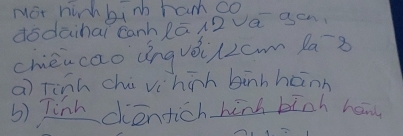 Một hình bình hành có
độ dài hai cạnh là 12 và 9cm,
chiều cao ứng với 12cm là 8
a) Tính chu vi hình bình hành
b) Tính diện tích hình bình hành